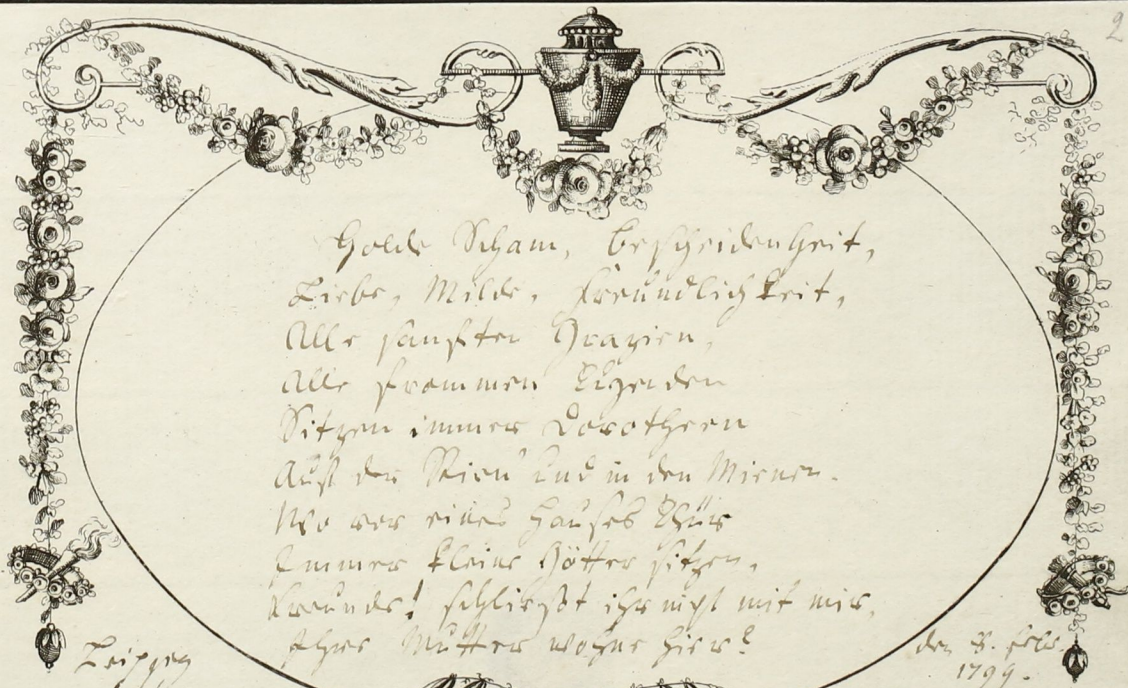 2
Holde Scham, bescheidenheit,
Liebe, Milde, freundlichkeit,
Alle sanften Grazien,
Alle frommen Tugenden
Sitzen immer Dorotheen
Auf der Stirn und in den Mienen.
Wo vor eines Hauses Thür
Immer kleine Götter sitzen,
Freunde! schließt ihr nicht mit mir,
Ihre Mutter wohne hier?
Leipzig
den 8. febr.
1799.